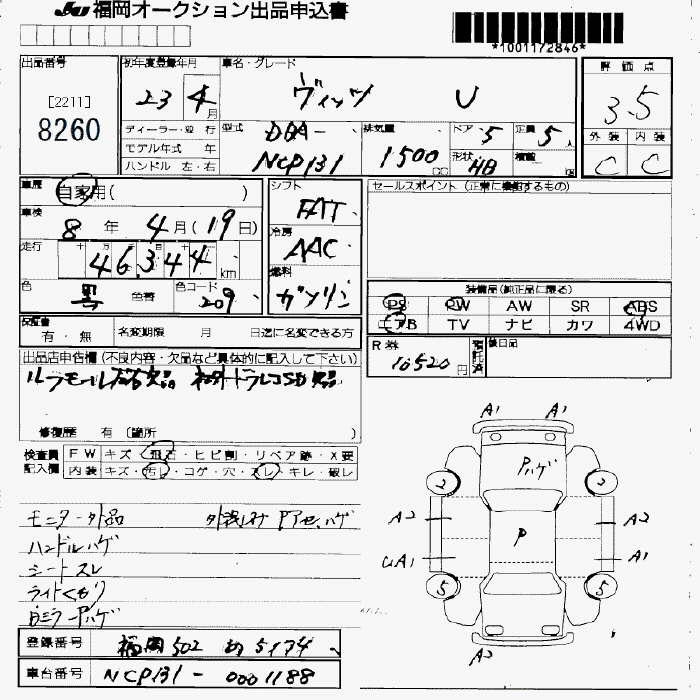 JU 福岡オークション出品申込書
*1001172846*
出品番号 [2211] 8260
初年度登録年月 23 4月
車名・グレード ヴィッツ U
評価点 3.5
外装 C 内装 C
ディーラー・並行
モデル年式 年
ハンドル 左・右
型式 DBA- NCP131
排気量 1500 cc
ドア 5 定員 5人
形状 HB 積載 kg
車歴 自家用( )
シフト FAT
セールスポイント (正常に機能するもの)
車検 8年 4月(19日)
冷房 AAC
走行 十万千百十 46344 km
燃料 ガソリン
色 黒 色替 色コード 209
装備品(純正品に限る)
PS PW AW SR ABS
エアB TV ナビ カワ 4WD
保証書 有・無
名変期限 月 日迄に名変できる方
R券 10520円 預託済
後日品
出品店申告欄 (不良内容・欠品など具体的に記入して下さい)
修復歴 有 〔箇所 〕
検査員記入欄
FW キズ・飛石・ヒビ割・リペア跡・X要
内装 キズ・汚れ・コゲ・穴・スレ・キレ・破レ
モニター外品
ハンドルハゲ
シートスレ
ライトくもり
A1 A1
Pハゲ
2 2
A2 A2
P
UA1 A1
5 5
A2
登録番号 福岡 502 5174
車台番号 NCP131- 0001188